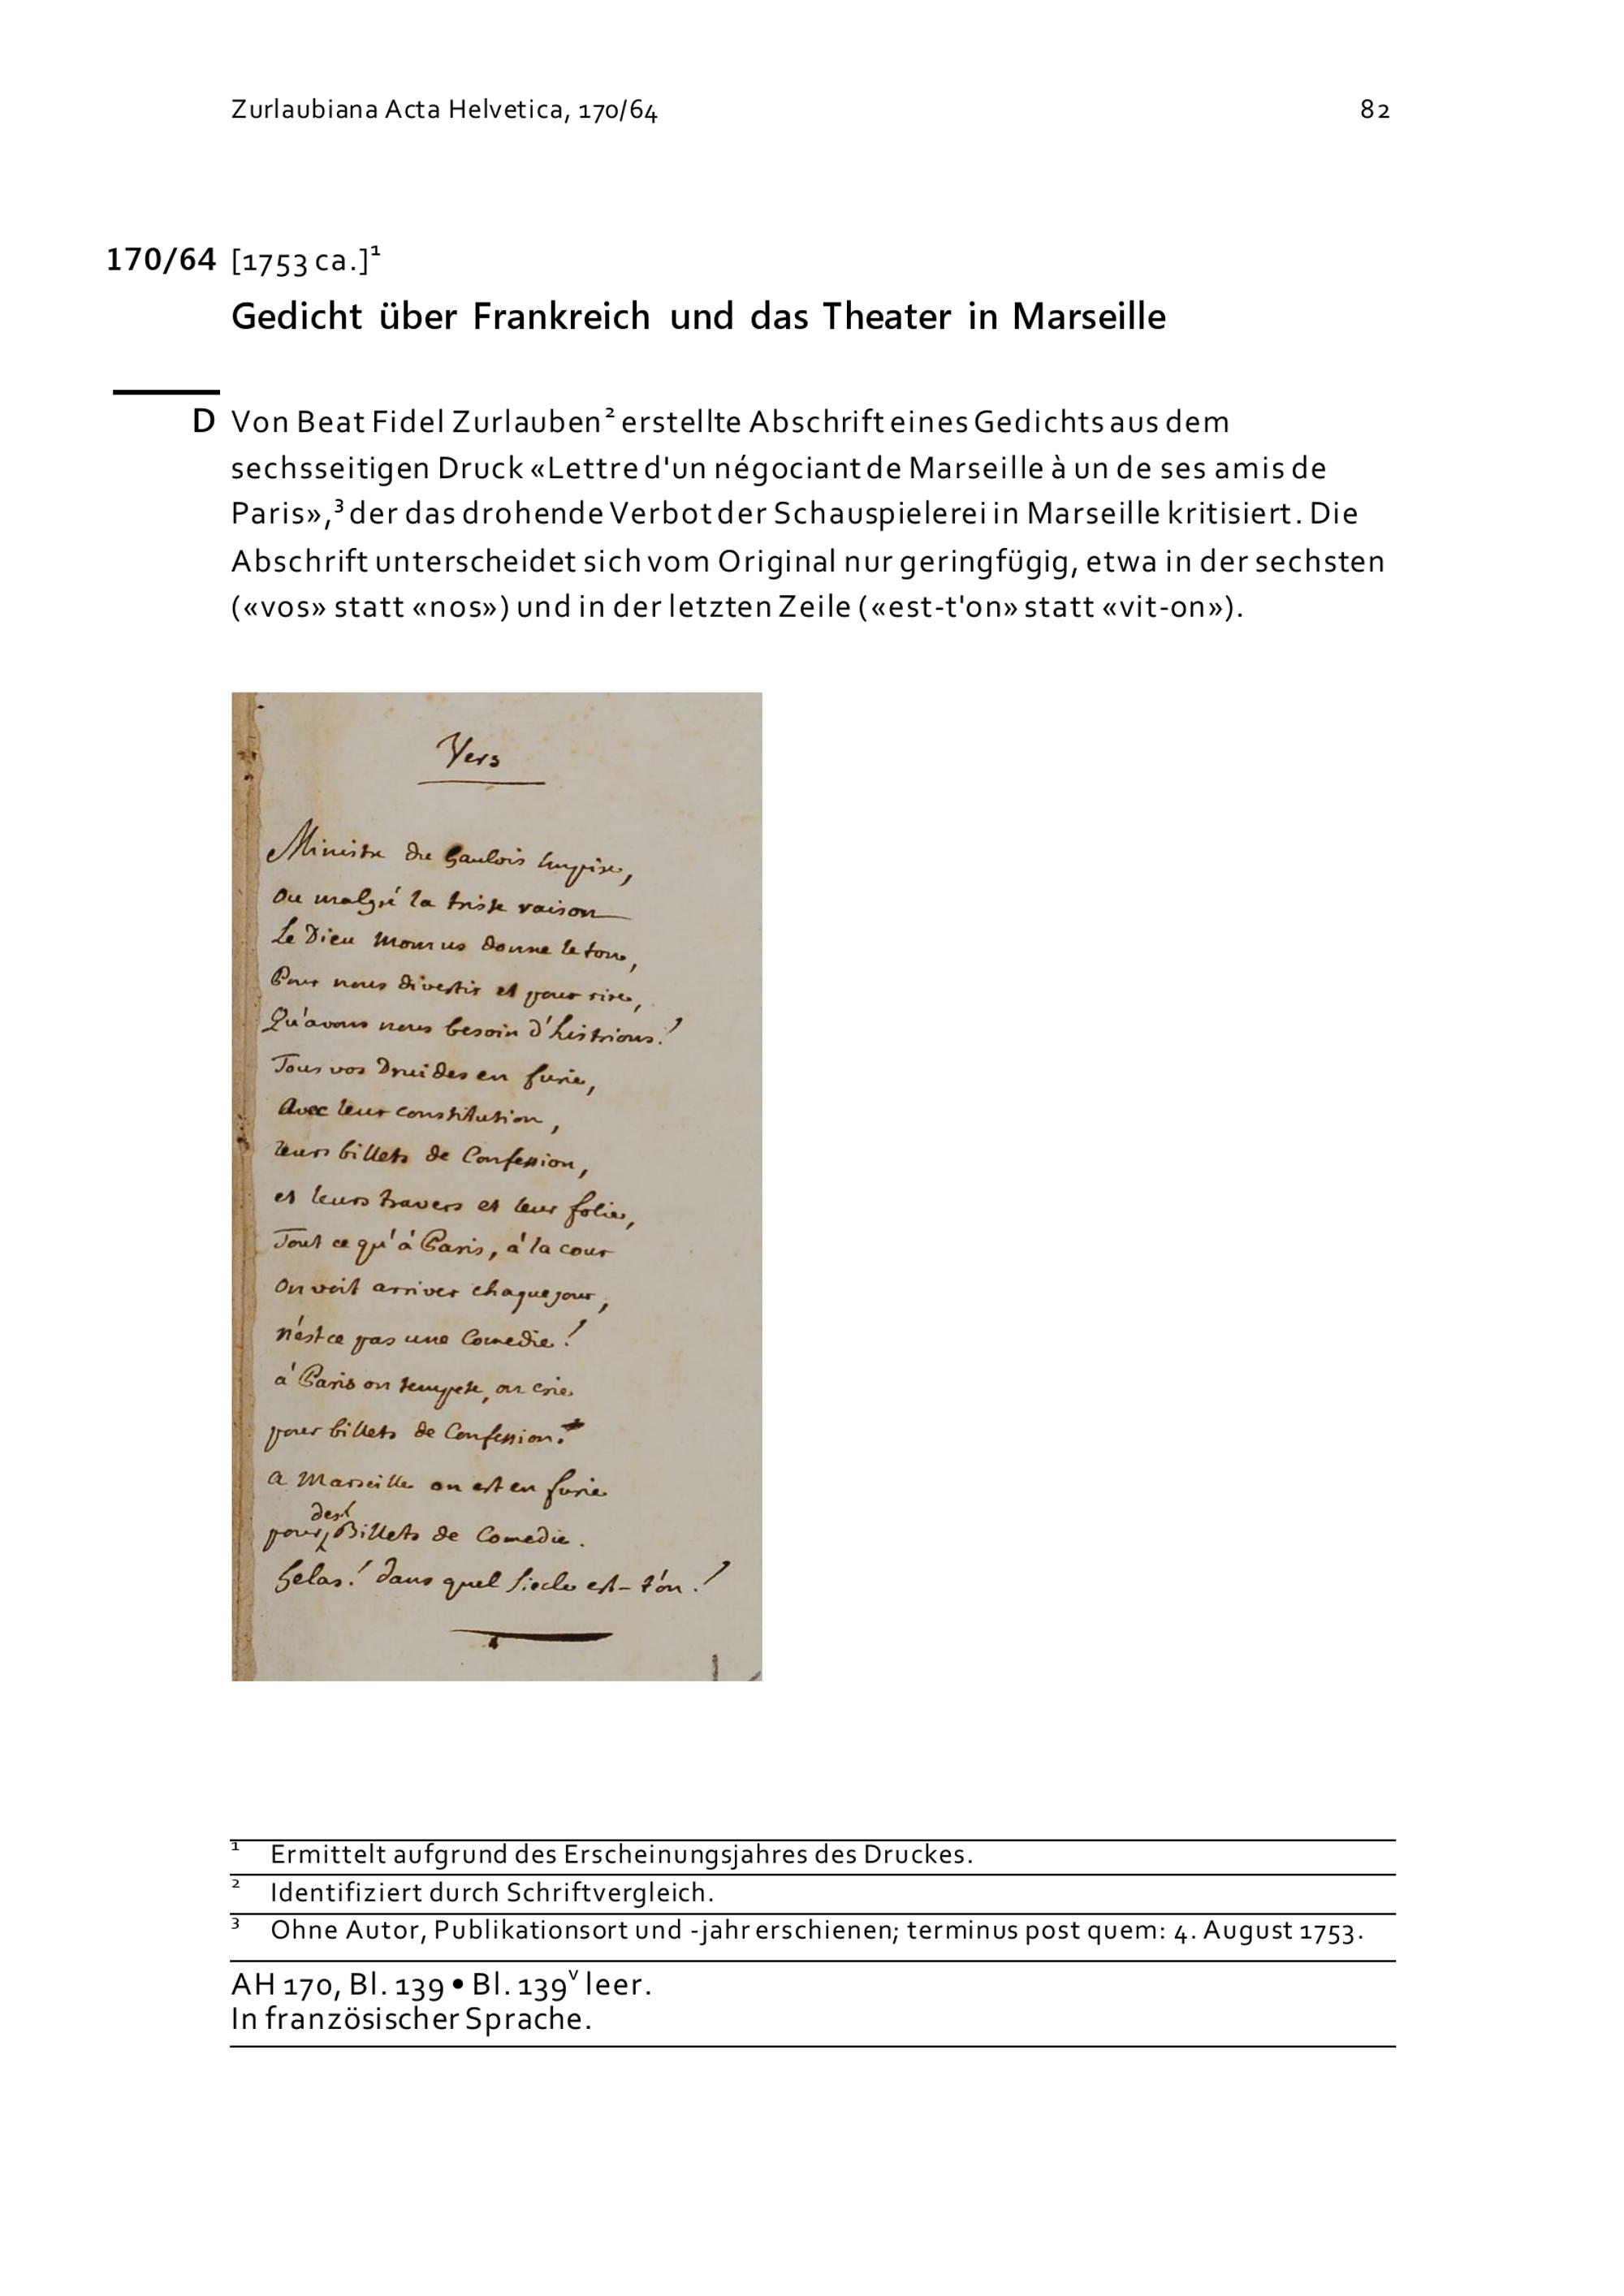 Zurlaubiana Acta Helvetica, 170/64 82
170/64 [1753 ca.]¹
Gedicht über Frankreich und das Theater in Marseille
D Von Beat Fidel Zurlauben² erstellte Abschrift eines Gedichts aus dem
sechsseitigen Druck «Lettre d'un négociant de Marseille à un de ses amis de
Paris»,³ der das drohende Verbot der Schauspielerei in Marseille kritisiert. Die
Abschrift unterscheidet sich vom Original nur geringfügig, etwa in der sechsten
(«vos» statt «nos») und in der letzten Zeile («est-t'on» statt «vit-on»).
Vers
Ministre du Gaulois Empire,
Ou malgré la triste raison
Le Dieu Momus donne le ton,
Pour nous divertir et pour rire,
Qu'avons nous besoin d'histrions!
Tous vos Druides en furie,
Avec leur constitution,
leurs billets de Confession,
et leurs travers et leur folie,
Tout ce qu'à Paris, à la cour
On voit arriver chaque jour,
n'est ce pas une Comedie!
à Paris on tempete, on crie
pour billets de Confession.
a Marseille on est en furie
des
pour Billets de Comedie.
helas! dans quel siecle est-t'on!
¹ Ermittelt aufgrund des Erscheinungsjahres des Druckes.
² Identifiziert durch Schriftvergleich.
³ Ohne Autor, Publikationsort und -jahr erschienen; terminus post quem: 4. August 1753.
AH 170, Bl. 139 • Bl. 139ᵛ leer.
In französischer Sprache.